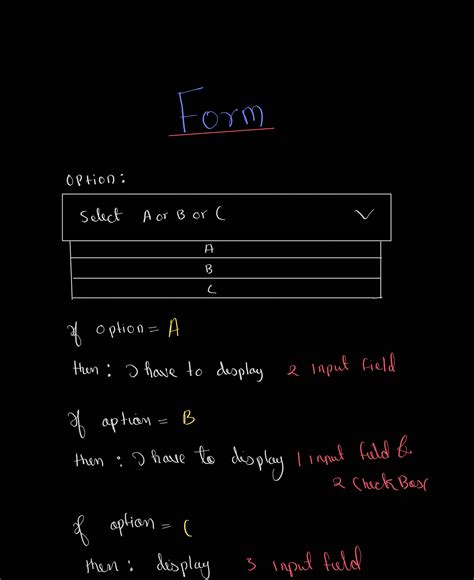 Form
OPtion:
Select A or B or C
A
B
C
If option = A
then: I have to display 2 input field
If option = B
then: I have to display 1 input field &
2 Check Box
If option = C
then: display 3 input field